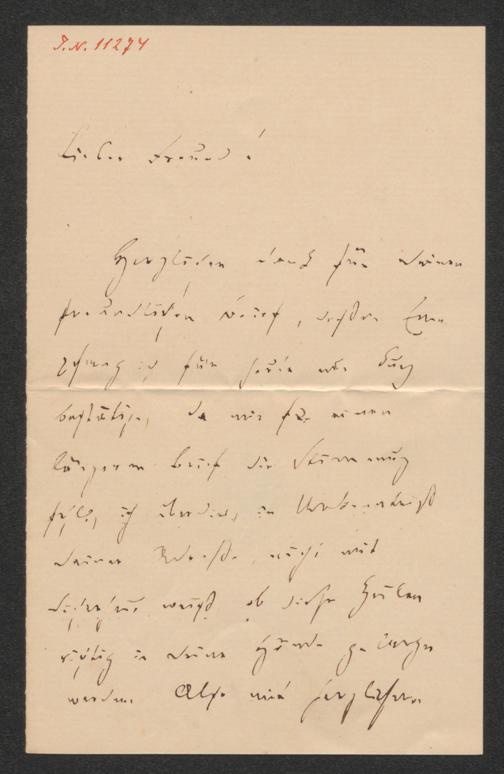 I.N. 11274
Lieber Freund!
Herzlichen Dank für deinen
freundlichen Brief, dessen Em-
pfang ich für heute nur kurz
bestätige, da mir für einen
längeren Brief die Stimmung
fehlt, ich überdies, in Unkenntniß
deiner Adresse, nicht mit
Sicherheit weiß ob diese Zeilen
richtig in deine Hände gelangen
werden. Also mit herzlichem